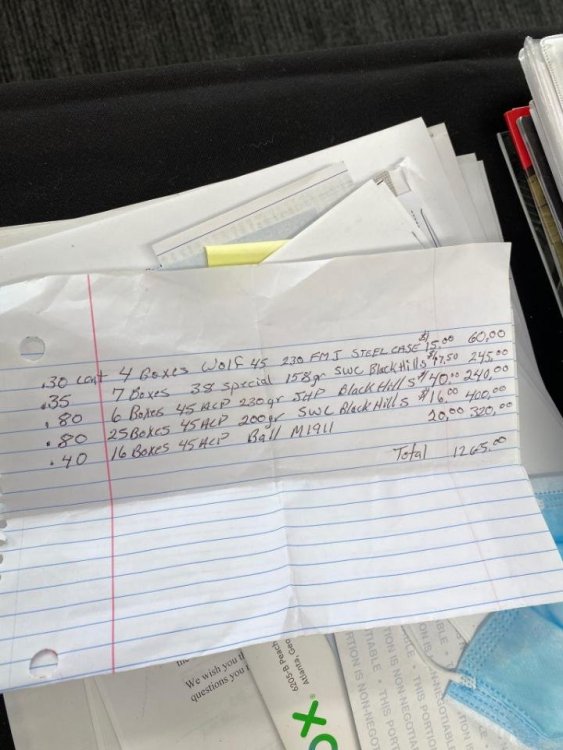 .30 cent 4 Boxes Wolf 45 230 FMJ STEEL CASE $15.00 60.00
.35 7 Boxes 38 special 158gr SWC Black Hills $47.50 245.00
.80 6 Boxes 45 ACP 230gr JHP Black Hills $40.00 240.00
.80 25 Boxes 45 ACP 200gr SWC Black Hills $16.00 400.00
.40 16 Boxes 45 ACP Ball M1911 20.00 320.00
Total 1265.00
We wish you
questions you
6205-B Peach
Atlanta, Geo
THIS PORTION
TION IS NON-NEGOTIABLE